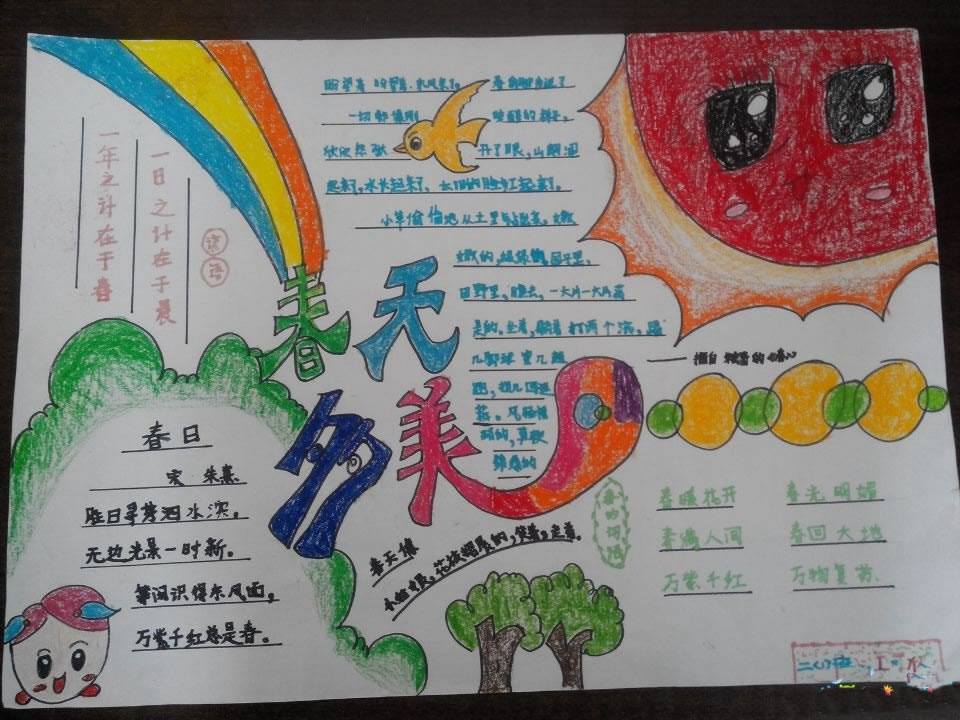 一年之计在于春
一日之计在于晨
谚语
春天
多美
盼望着 盼望着,东风来了,春
一切都像刚 睡醒的样子,
欣欣然张 开了眼,山朗润
起来了,水长起来了,太阳的脸红起来了。
小草偷偷地从土里钻出来,嫩
嫩的,绿绿的,园子里,
田野里,瞧去,一大片一大片满
是的。坐着,躺着 打两个滚,踢
几脚球,赛几趟
跑,捉几回迷
藏。风轻悄
悄的,草软
绵绵的
—— 摘自 《春》
春日
宋 朱熹
胜日寻芳泗水滨,
无边光景一时新。
等闲识得东风面,
万紫千红总是春。
春天像
小姑娘,花枝招展的,笑着,走着。
春的词语
春暖花开
春光明媚
春满人间
春回大地
万紫千红
万物复苏
班